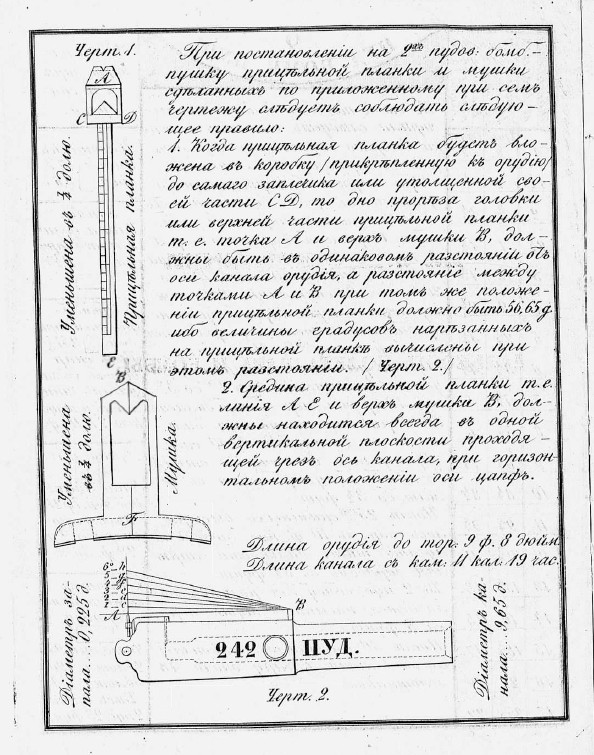 Черт. 1.
При постановленіи на 2хъ пудов: бомб.-
пушку прицѣльной планки и мушки
сдѣланныхъ по приложенному при семъ
чертежу слѣдуетъ соблюдать слѣдую-
щее правило:
1. Когда прицѣльная планка будетъ вло-
жена въ коробку /прикрѣпленную къ орудію/
до самаго заплечика или утолщенной сво-
ей части C D, то дно прорѣза головки
или верхней части прицѣльной планки
т. е. точка A и верхъ мушки B, дол-
жны быть въ одинаковомъ разстояніи отъ
оси канала орудія, а разстояніе между
точками A и B при томъ же положе-
ніи прицѣльной планки должно быть 56,65 д.
ибо величины градусовъ нарѣзанныхъ
на прицѣльной планкѣ вычислены при
этомъ разстояніи. / Черт. 2./
2. Средина прицѣльной планки т. е.
линія A E и верхъ мушки B, дол-
жны находится всегда въ одной
вертикальной плоскости проходя-
щей чрезъ ось канала, при горизон-
тальномъ положеніи оси цапфъ.
Длина орудія до тор. 9 ф. 8 дюйм.
Длина канала съ кам: 11 кал. 19 час.
A
C D
Уменьшена въ ¼ долю.
Прицѣльная планка.
E
B
Уменьшена
въ ½ долю.
Мушка.
F
Діаметръ за-
пала.... 0,225 д.
6°
5
4
3
2
1
A
B
242 ПУД.
Діаметръ ка-
нала.... 9,65 д.
Черт. 2.